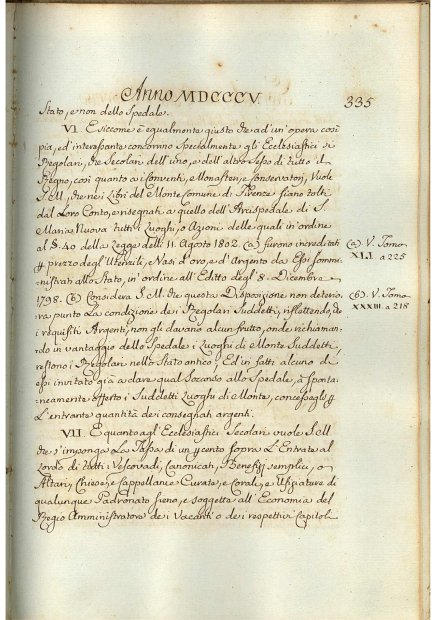 Anno MDCCCV
335
Stato, e non dello Spedale.
VI. E siccome è egualmente giusto che ad un' opera così
pia, ed interessante concorrino specialmente gli Ecclesiastici sì
Regolari, che Secolari dell' uno, e dell' altro Sesso di tutto il
Regno, così quanto ai Conventi, e Monasteri, e Conservatorj, Vuole
S. M., che nei Libri del Monte Comune di Firenze siano tolti
dal Loro Conto, e risegnati a quello dell' Arcispedale di S.
Maria Nuova tutti i Luoghi, o Azioni delle quali in ordine
al §. 40 della Legge degli 11. Agosto 1802. (a) furono incredi­tati
(a). V. Tomo
XLI a 225
p prezzo degl' Utensili, e Vasi d' oro, e d' Argento da Essi somm­i
nistrati allo Stato, in ordine all' Editto degl' 8. Dicembre
1798. (b) Considera S. M. che questa Disposizione non deterio
(b). V. Tomo
XXXIII a 218
ra punto La condizione dei Regolari Suddetti, riflettendo, che
i requisiti Argenti, non gli davano alcun frutto, onde richiaman
do in vantaggio dello Spedale i Luoghi di Monte Suddetti,
restono i Regolari nello Stato antico; Ed in fatti alcuno di
essi invitato già a dare qual Soccorso allo Spedale, à spon­ta
neamente offerto i Suddetti Luoghi di Monte, concessegli p
L' entrante quantità dei consegnati argenti.
VII. E quanto agl' Ecclesiastici Secolari vuole S. M.
che s' imponga La Tassa di un p cento sopra L' Entrate al
Lordo di tutti i Vescovadi, Canonicati, Benefizj semplici, o
Altari, Chiese, e Cappellanie Curate, e Corali, e Ufiziature di
qualunque Padronato sieno, e soggette all' Economia del
Regio Amministratore dei Vacanti o dei respettivi Capitoli